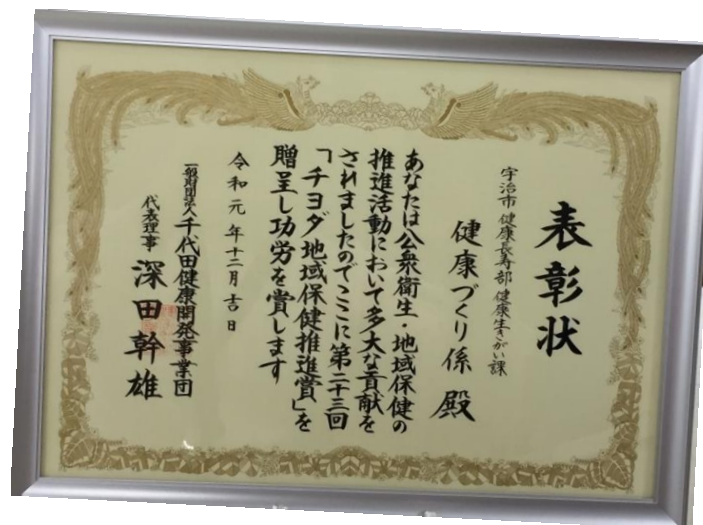 表彰状
宇治市 健康長寿部 健康生きがい課
健康づくり係 殿
あなたは公衆衛生・地域保健の
推進活動において多大な貢献を
されましたのでここに第二十三回
「チヨダ地域保健推進賞」を
贈呈し功労を賞します
令和元年十二月吉日
一般財団法人 千代田健康開発事業団
代表理事 深田幹雄